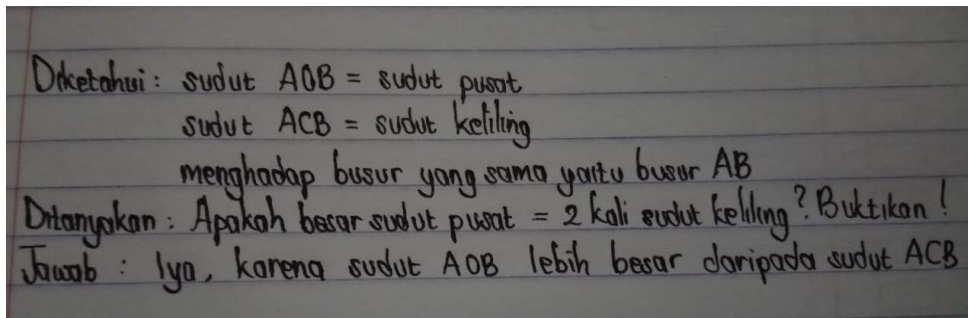 Diketahui : sudut AOB = sudut pusat
sudut ACB = sudut keliling
menghadap busur yang sama yaitu busur AB
Ditanyakan : Apakah besar sudut pusat = 2 kali sudut keliling ? Buktikan !
Jawab : Iya, karena sudut AOB lebih besar daripada sudut ACB